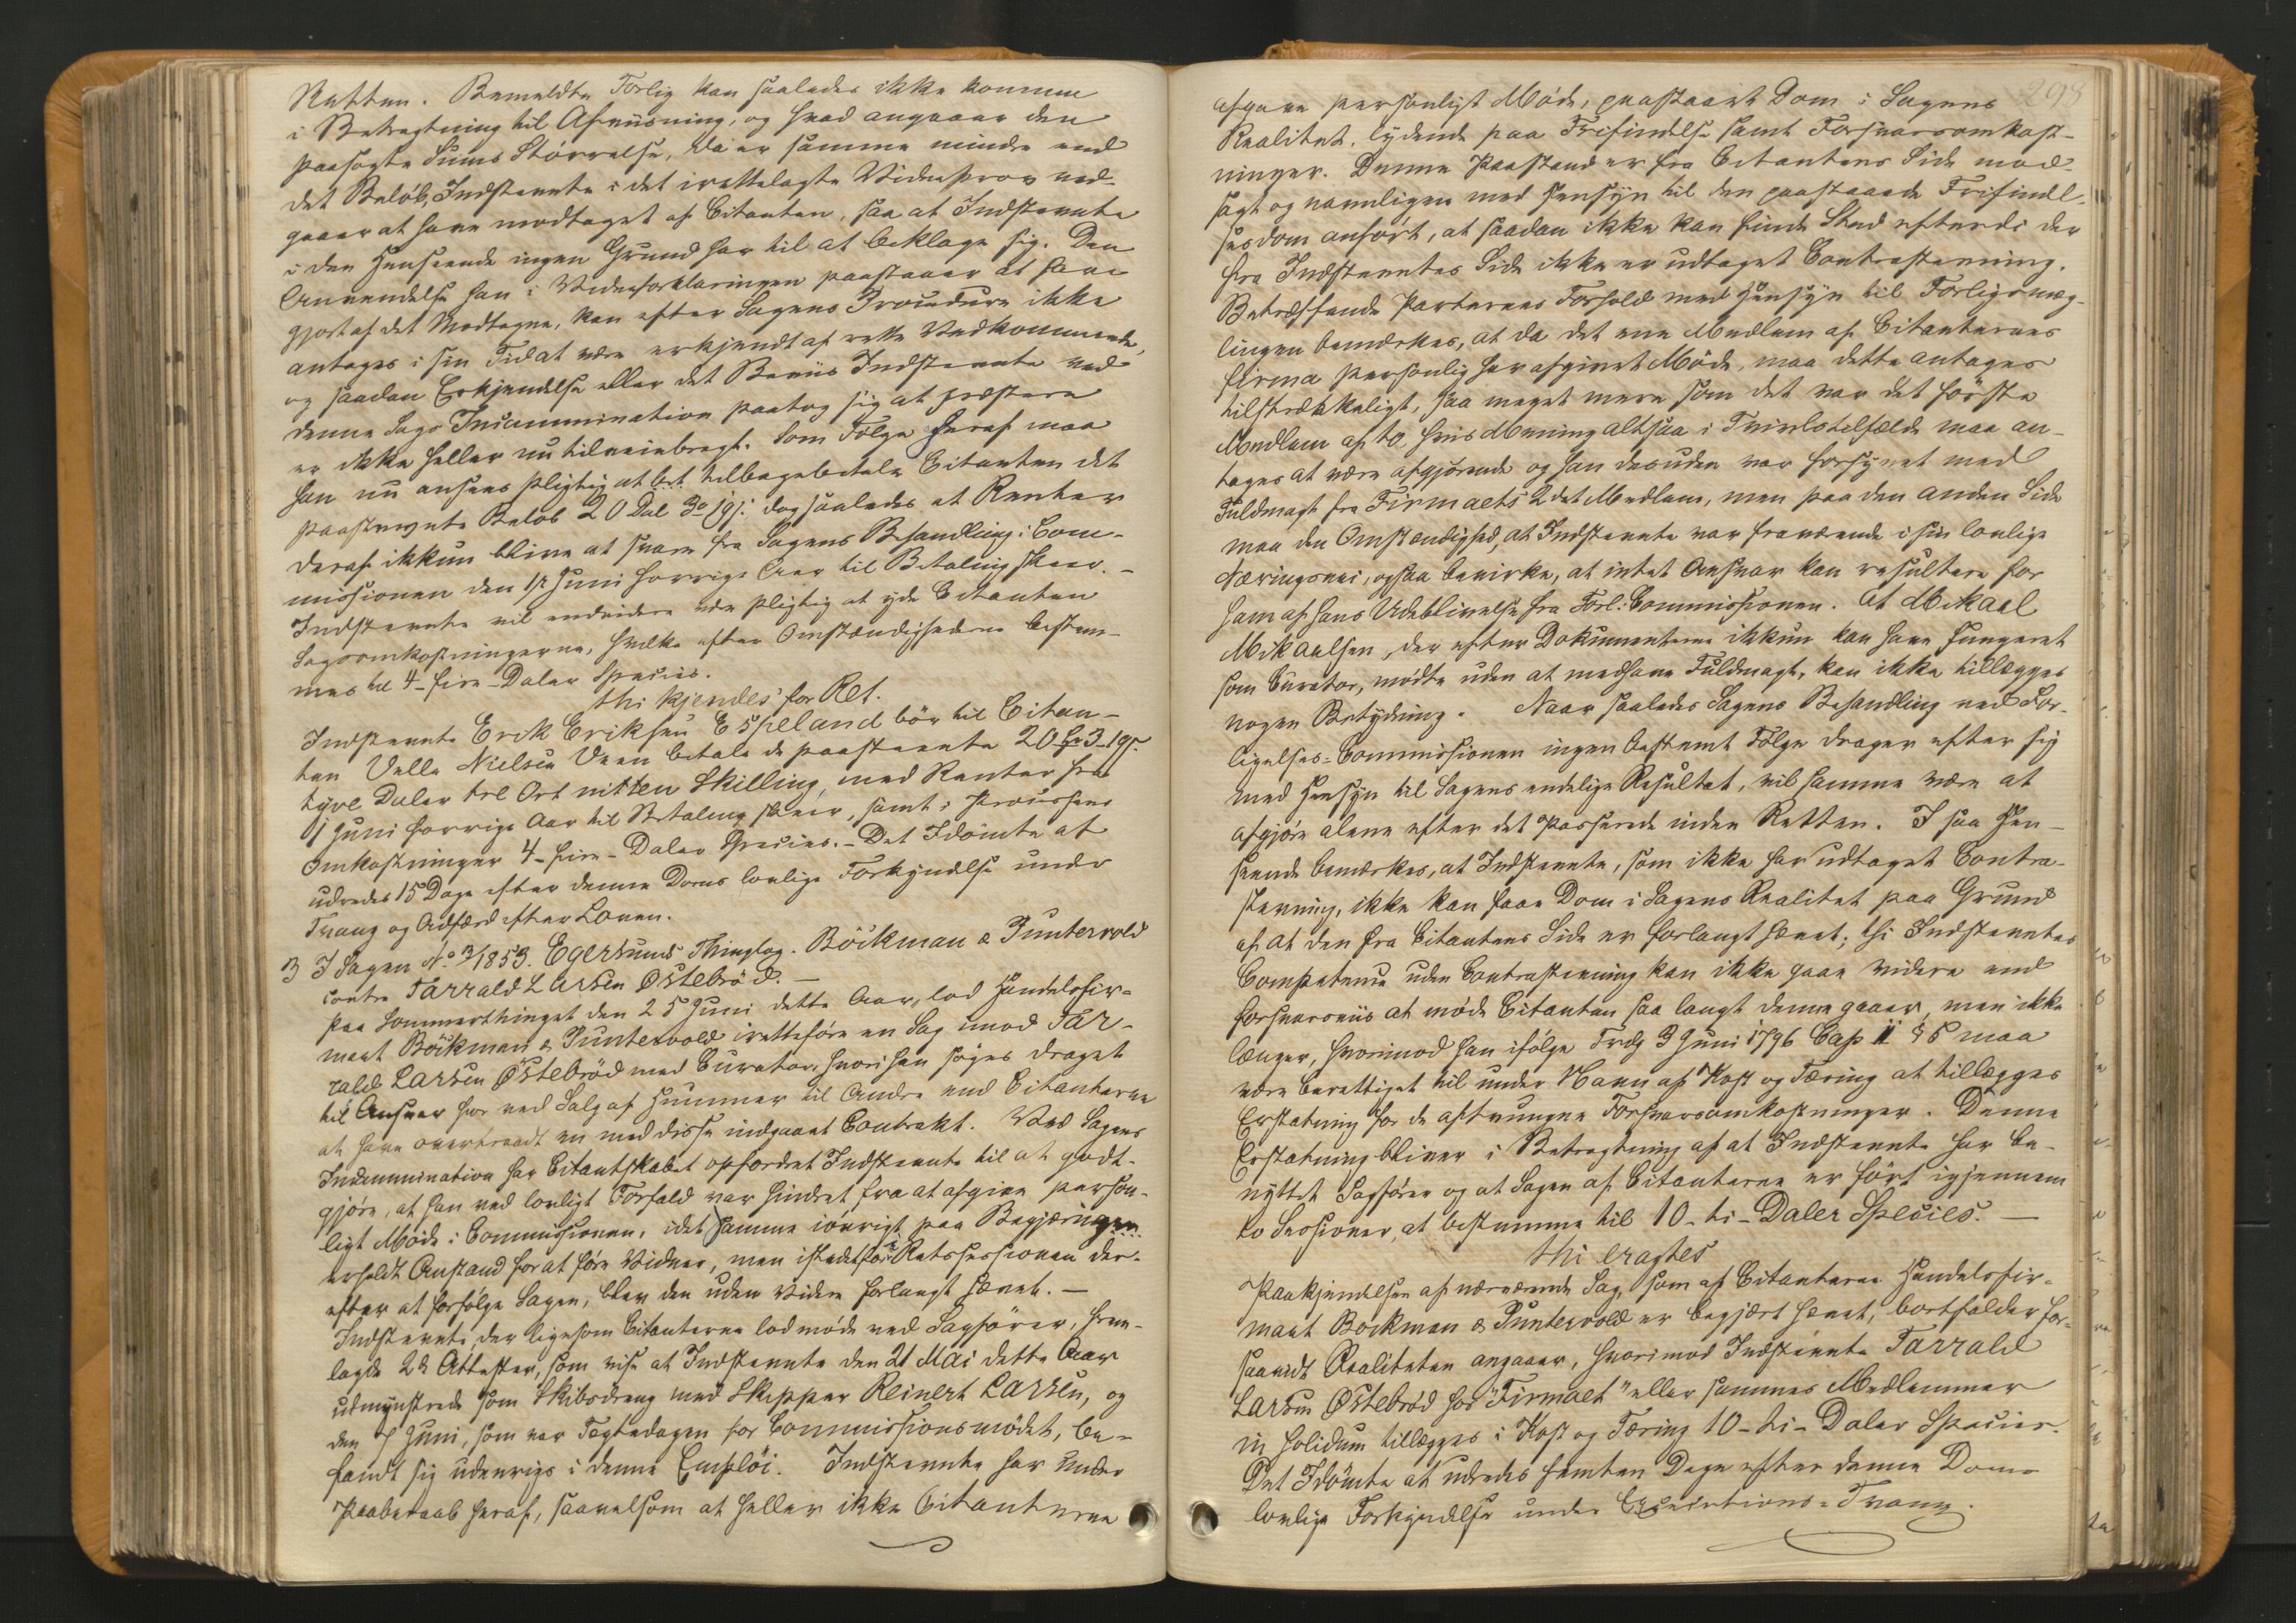 Retten. Bemeldte Forlig kan saaledes ikke komme
i Betragtning til Afviisning, og hvad angaaer den
paasøgte Sums Störrelse, da er samme mindre end
det Beløb, Indstevnte i det irettelagte Vidneprov ved-
gaaer at have modtaget af Citanten, saa at Indstevnte
i den Henseende ingen Grund har til at beklage sig. Den
Anvendelse han i Vidneforklaringen paastaaer at have
gjort af det Modtagne, kan efter Sagens Procedure ikke
antages i sin Tid at være erkjendt af rette Vedkommende,
og saadan Erkjendelse eller det Beviis Indstevnte ved
denne Sags Incammination paatog sig at præstere
er ikke heller nu tilveiebragt. Som Fölge heraf maa
han nu ansees pligtig at tilbagebetale Citanten det
paastevnte Beløb 20 Dal 3 19 s. dog saaledes at Renter
deraf ikkun blive at svare fra Sagens Behandling i Com-
missionen den 1 Juni forrige Aar til Betaling skeer. –
Indstevnte vil endvidere være pligtig at yde Citanten
Sagsomkostningerne, hvilke efter Omstændighederne bestem-
mes til 4 – fire – Daler Species.
thi kjendes for Ret.
Indstevnte Erik Eriksen Espeland bör til Citan-
ten Velle Nielsen Veen betale de paastevnte 20 3 19 s.
tyve Daler tre Ort nitten Skilling, med Renter fra
1 Juni forrige Aar til Betaling skeer, samt i Processens
Omkostninger 4 – fire – Daler Species. – Det Idömte at
udredes 15 Dage efter denne Doms lovlige Forkyndelse under
Tvang og Adfærd efter Loven.
3 I Sagen No 3/1853. Egersunds Thinglag. Böckman & Puntervold
contra Tarrald Larsen Østebröd. –
Paa Sommerthinget den 25 Juni dette Aar, lod Handelsfir-
maet Böckman & Puntervold iretteføre en Sag imod Tar-
rald Larsen Østebröd med Curator, hvori han søges draget
til Ansvar for ved Salg af Hummer til Andre end Citanterne
at have overtraadt en med disse indgaaet Contrakt. Ved Sagens
Incammination har Citantskabet opfordret Indstevnte til at godt-
gjöre, at han ved lovligt Forfald var hindret fra at afgive person-
ligt Möde i Commissionen, idet samme iövrigt paa Begjæringen
erholdt Anstand for at føre Vidner, men istedetfor i Retssessionen der-
efter at forfölge Sagen, blev den uden Videre forlangt hævet. –
Indstevnte, der ligesom Citanterne lod møde ved Sagfører, frem-
lagde 2de Attester, som vise at Indstevnte den 21 Mai dette Aar
udmynstrede som Skibsdreng med Skipper Reinert Larsen, og
den 7 Juni, som var Tægtedagen for Commissionsmødet, be-
fandt sig udenrigs i denne Emplöi. Indstevnte har under
Paaberaab heraf, saavelsom at heller ikke Citanterne
298
afgave personligt Møde, paastaaet Dom i Sagens
Realitet, lydende paa Frifindelse samt Forsvarsomkost-
ninger. Denne Paastand er fra Citantens Side mod-
sagt og navnligen med Hensyn til den paastaaede Frifindel-
sesdom anført, at saadan ikke kan finde Sted efterdi der
fra Indstevntes Side ikke er udtaget Contrastevning.
Betræffende Parternes Forhold med Hensyn til Forligsmæg-
lingen bemærkes, at da det ene Medlem af Citanternes
Firma personlig har afgivet Møde, maa dette antages
tilstrækkeligt, saa meget mere som det var det første
Medlem af to hvis Mening altsaa i Tvivlstilfælde maa an-
tages at være afgjørende og han desuden var forsynet med
Fuldmagt fra Firmaets 2det Medlem, men paa den anden Side
maa den Omstændighed, at Indstevnte var fraværende i sin lovlige
Næringsvei, ogsaa bevirke, at intet Ansvar kan resultere for
ham af hans Udeblivelse fra Forl: Commissionen. At Mikael
Mikaelsen, der efter Dokumenterne ikkun kan have fungeret
som Curator, mødte uden at medhave Fuldmagt, kan ikke tillægges
nogen Betydning. Naar saaledes Sagens Behandling ved For-
ligelses-Commissionen ingen bestemt Følge drager efter sig
med Hensyn til Sagens endelige Resultat, vil samme være at
afgjøre alene efter det Passerede inden Retten. I saa Hen-
seende bemærkes, at Indstevnte, som ikke har udtaget Contra-
stevning, ikke kan faae Dom i Sagens Realitet paa Grund
af at den fra Citantens Side er forlangt hævet; thi Indstevntes
Competence uden Contrastevning kan ikke gaae videre end
forsvarsviis at møde Citanten saa langt denne gaaer, men ikke
længer, hvorimod han ifølge Frdg 3 Juni 1796 Cap II § 5 maa
være berettiget til under Navn af Kost og Tæring at tillægges
Erstatning for de aftvungne Forsvarsomkostninger. Denne
Erstatning bliver i Betragtning af at Indstevnte har be-
nyttet Sagfører og at Sagen af Citanterne er ført igjennem
to Sessioner, at bestemme til 10 – ti – Daler Species. –
thi eragtes
Paakjendelsen af nærværende Sag, som af Citanterne Handelsfir-
maet Böckman & Puntervold er begjært hævet, bortfalder for-
saavidt Realiteten angaaer, hvorimod Indstevnte Tarrald
Larsen Østebröd hos "Firmaet" eller sammes Medlemmer
in solidum tillægges i Kost og Tæring 10 – ti – Daler Species.
Det Idømte at udredes femten Dage efter denne Doms
lovlige Forkyndelse under Executions-Tvang.